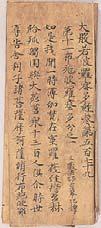 大般若波羅蜜多經卷第五百七十九
第十一布施波羅蜜多分之一
如是我聞一時薄伽梵在室羅筏住多林
給孤獨園與大苾芻眾千二百人俱爾時世
尊告舍利子諸菩薩摩訶薩行布施波羅